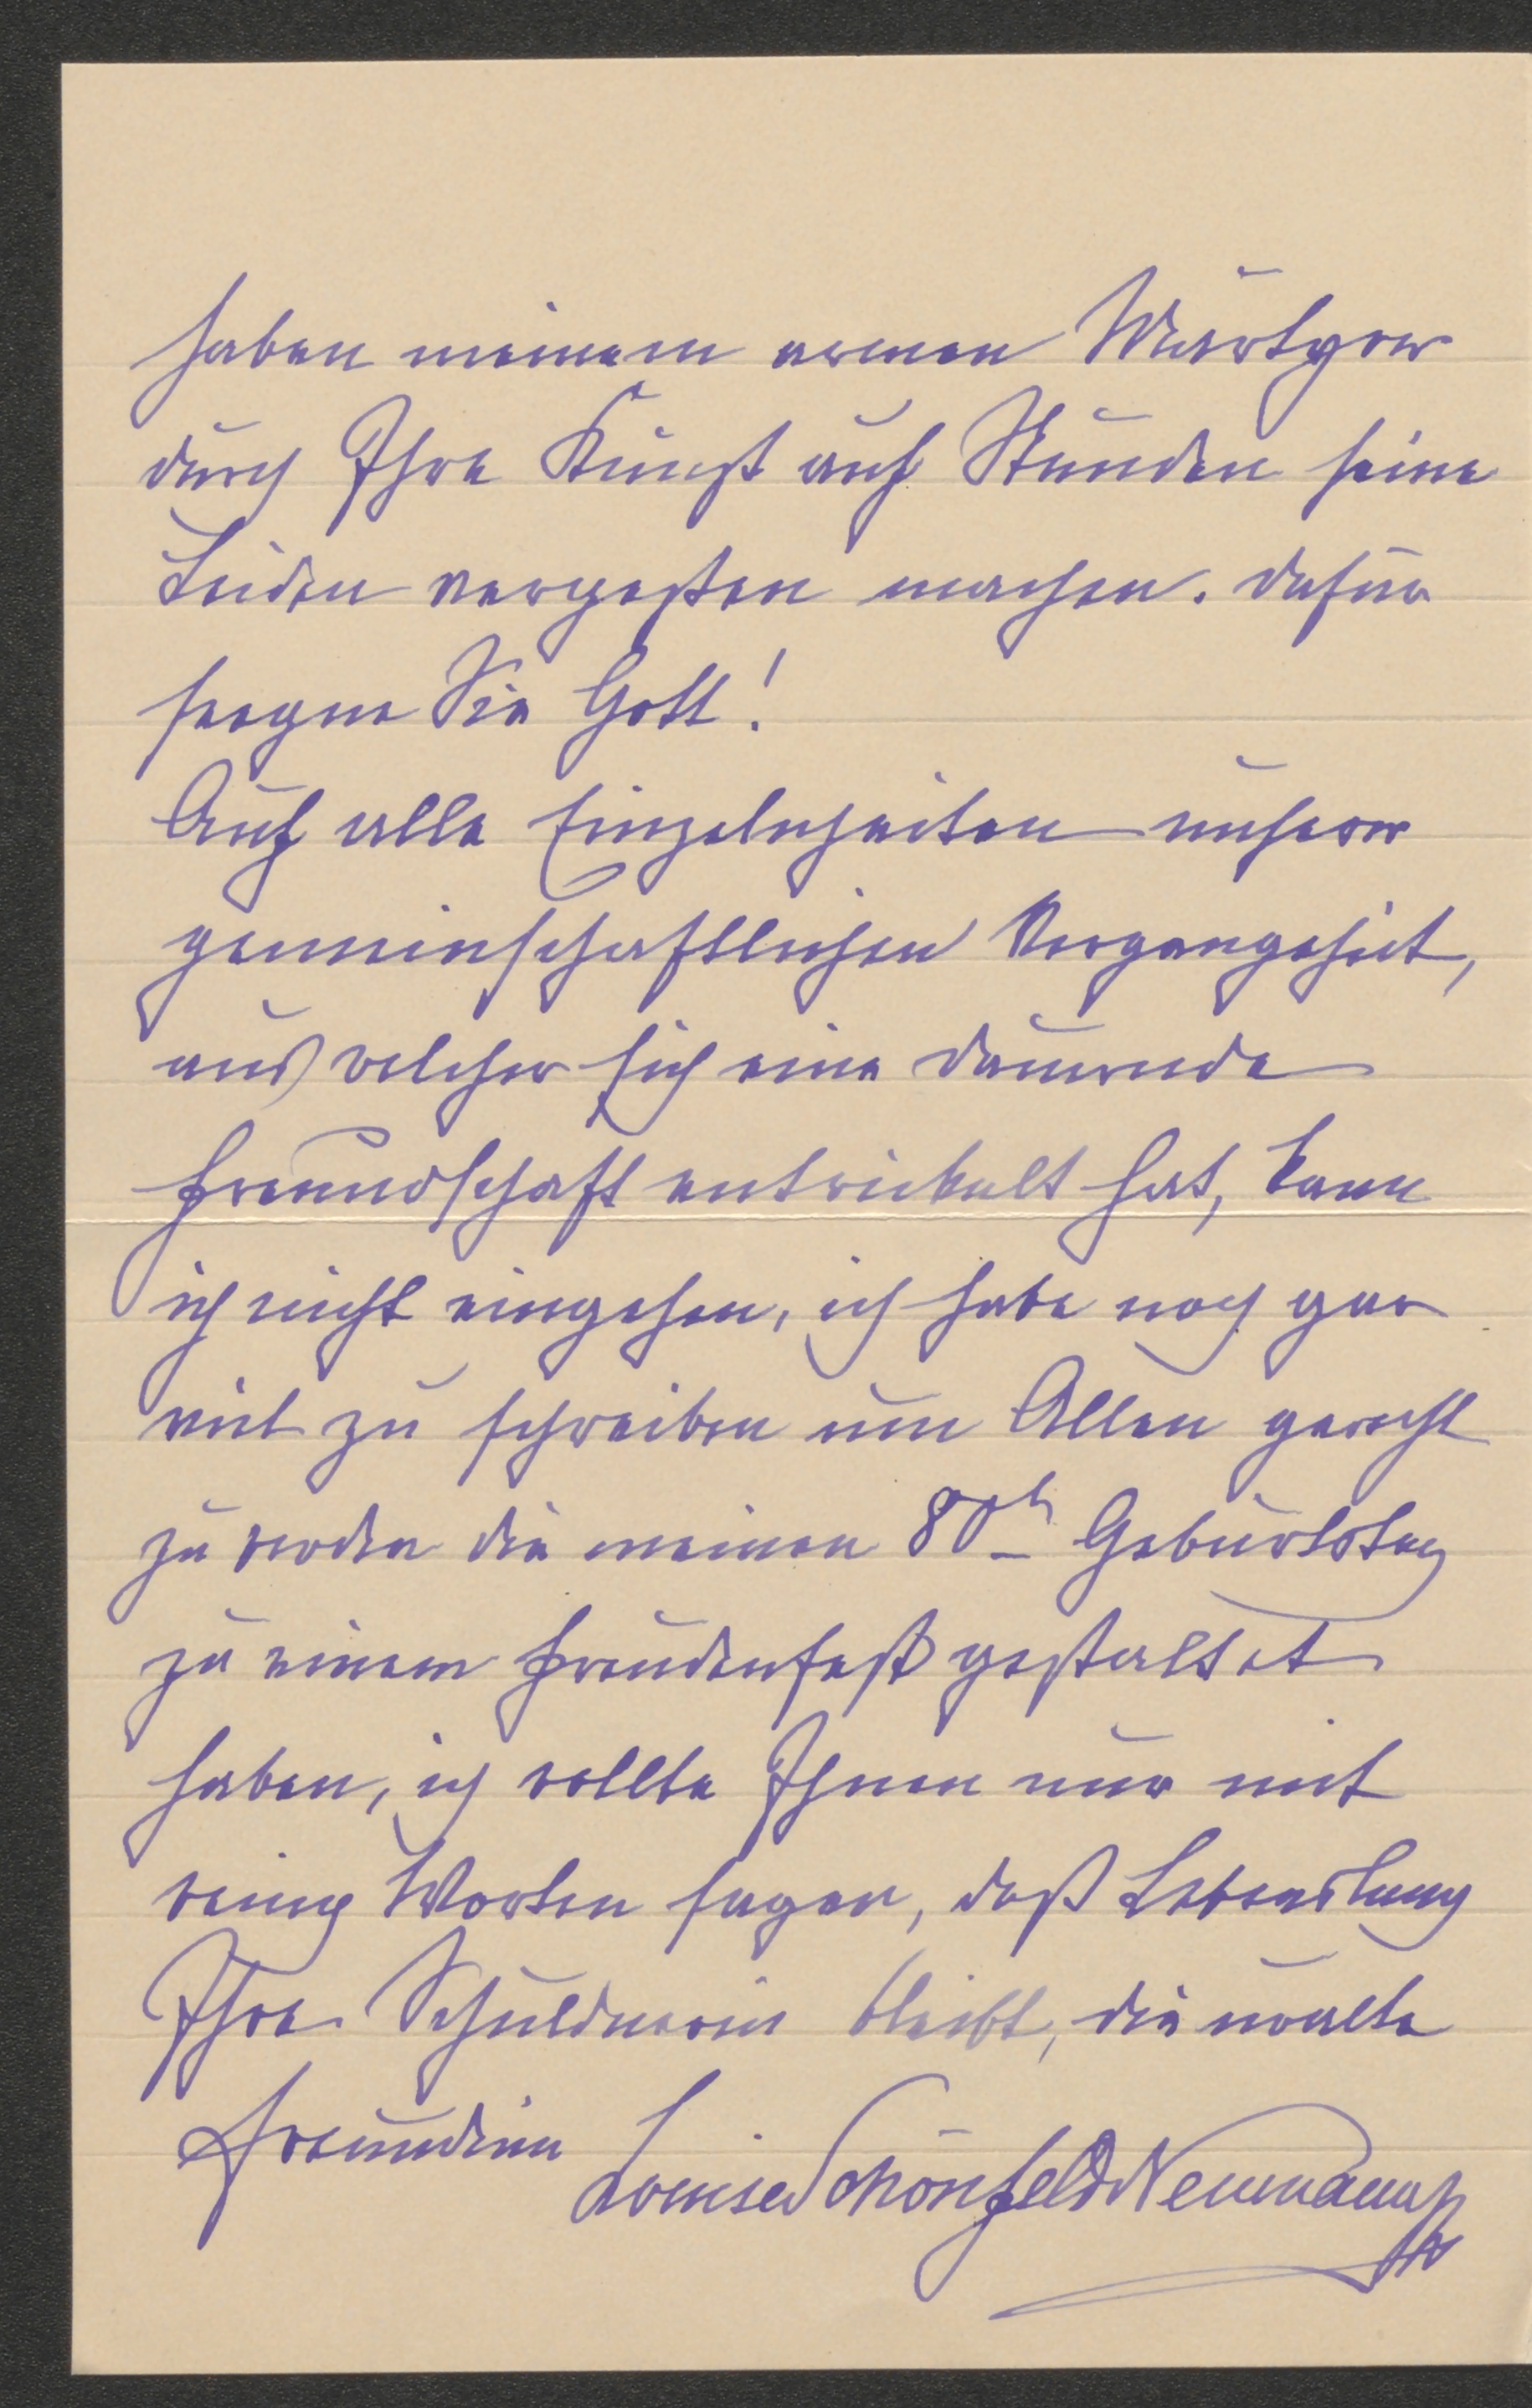 haben meinem armen Märtyrer
durch Ihre Kunst auf Stunden seine
Leiden vergessen machen. Dafür
seegne Sie Gott!
Auf alle Einzelnheiten unserer
gemeinschaftlichen Vergangeheit,
aus welcher sich eine dauernde
Freundschaft entwickelt hat, kann
ich nicht eingehen, ich habe noch gar
viel zu schreiben um Allen gerecht
zu werden die meinen 80t Geburtstag
zu einem Freudenfest gestaltet
haben, ich wollte Ihnen nur mit
wenig Worten sagen, daß Lebenslang
Ihre Schuldnerin bleibt, die uralte
Freundinn
Louise Schönfeld Neumann